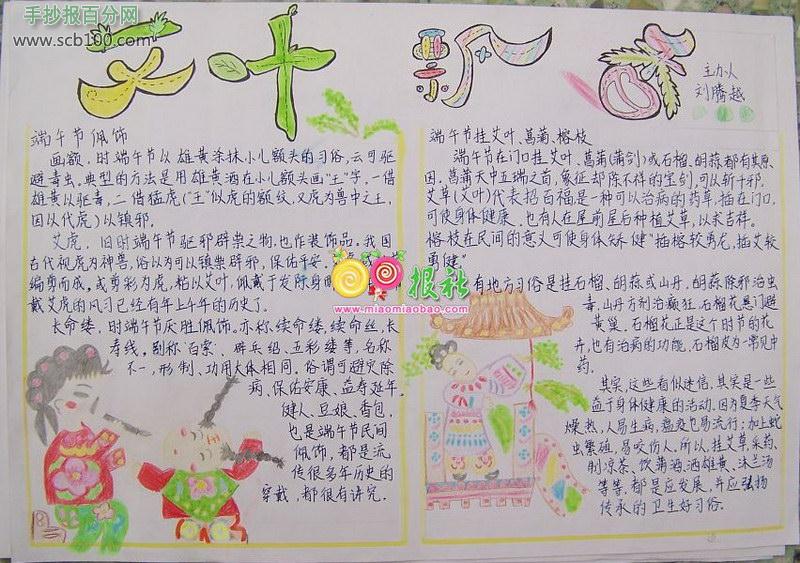 手抄报百分网
www.scb100.com
艾叶飘香
主办人
刘腾越
端午节佩饰
画额,时端午节以雄黄涂抹小儿额头的习俗,云可驱
避毒虫。典型的方法是用雄黄酒在小儿额头画"王"字,一借
雄黄以驱毒,二借猛虎("王"似虎的额纹,又虎为兽中之王,
因以代虎)以镇邪。
艾虎,旧时端午节驱邪辟祟之物,也作装饰品。我国
古代视虎为神兽,俗以为可以镇祟辟邪、保佑平安。
编剪而成,或剪彩为虎,粘以艾叶,佩戴于发际身
戴艾虎的风习已经有年上午年的历史了。
长命缕,时端午节厌胜佩饰。亦称续命缕、续命丝、长
寿线,别称"百索"、辟兵绍、五彩缕等,名称
不一,形制、功用大体相同。俗谓可避灾除
病、保佑安康、益寿延年。
健人、豆娘、香包,
也是端午节民间
佩饰,都是流
传很多年历史的
穿戴,都很有讲究。
端午节挂艾叶、菖蒲、榕枝
端午节在门口挂艾叶、菖蒲(蒲剑)或石榴、胡蒜都有其原
因。菖蒲天中五瑞之首,象征却除不祥的宝剑,可以斩千邪。
艾草(艾叶)代表招百福是一种可以治病的药草,插在门口,
可使身体健康、也有人在屋前屋后种植艾草,以求吉祥。
榕枝在民间的意义可使身体矫健"插榕较勇龙,插艾较
勇健"
有地方习俗是挂石榴、胡蒜或山丹,胡蒜除邪治虫
毒,山丹方剂治癫狂。石榴花悬门避
黄巢。石榴花正是这个时节的花
卉,也有治病的功能,石榴皮为常见中
药。
其实,这些看似迷信,其实是一些
益于身体健康的活动。因为夏季天气
燥热,人易生病,瘟疫也易流行;加上蛇
虫繁殖,易咬伤人,所以,挂艾草、采药、
制凉茶、饮蒲酒、洒雄黄、沐兰汤
等等,都是应发展,并应强扬
传承的卫生好习俗。
报社
www.miaomiaobao.com